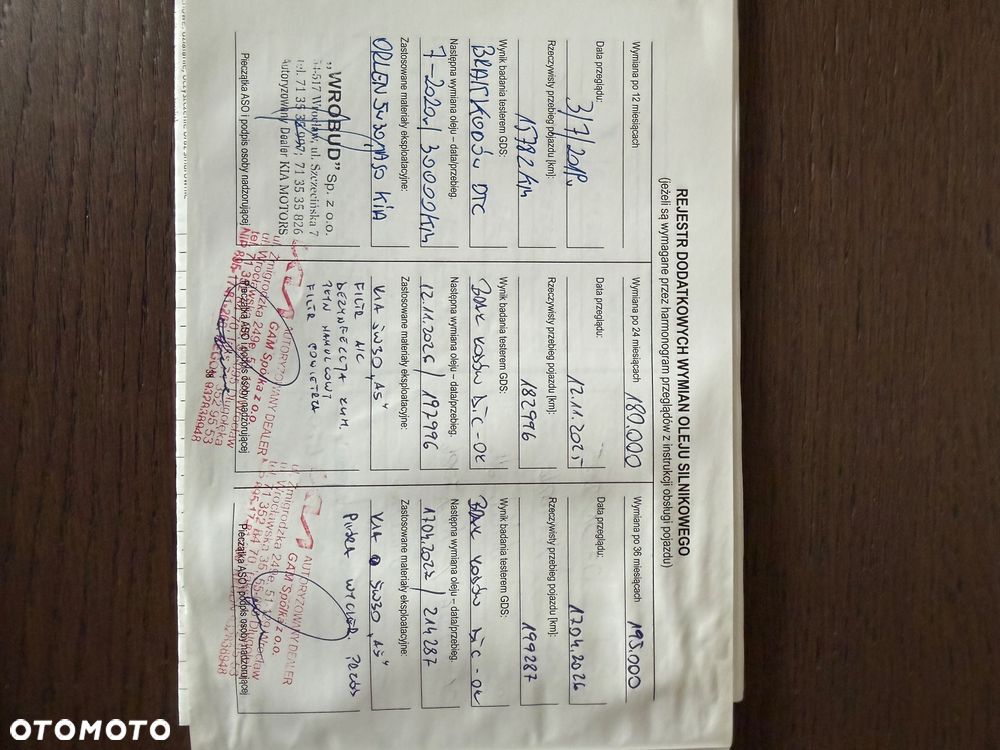 REJESTR DODATKOWYCH WYMIAN OLEJU SILNIKOWEGO
(jeżeli są wymagane przez harmonogram przeglądów z instrukcji obsługi pojazdu)
Wymiana po 12 miesiącach
Data przeglądu:
3/7/201
Rzeczywisty przebieg pojazdu [km]:
15782 km
Wynik badania testerem GDS:
BRAK KODÓW DTC
Następna wymiana oleju – data/przebieg.
7-2020r/30000km
Zastosowane materiały eksploatacyjne:
ORLEN 5W30, ASO KIA
„WROBUD” Sp. z o.o.
54-517 Wrocław, ul. Szczecińska 7
tel. 71 35 35 71 35 35 826
Autoryzowany Dealer KIA MOTORS
Pieczątka ASO i podpis osoby nadzorującej
Wymiana po 24 miesiącach 180.000
Data przeglądu:
12.11.2025
Rzeczywisty przebieg pojazdu [km]:
182996
Wynik badania testerem GDS:
BRAK KODÓW DTC - OK
Następna wymiana oleju – data/przebieg.
12.11.2026 / 197996
Zastosowane materiały eksploatacyjne:
KIA 5W30 „A5”
FILTR A/C
DEZYNFEKCJA KLIM.
PŁYN HAMULCOWY
FILTR POWIETRZA
AUTORYZOWANY DEALER
GAM Spółka z o.o.
ul. Żmigrodzka 249e, 51-129 Wrocław
Pieczątka ASO i podpis osoby nadzorującej
Wymiana po 36 miesiącach 195.000
Data przeglądu:
17.04.2026
Rzeczywisty przebieg pojazdu [km]:
199287
Wynik badania testerem GDS:
BRAK KODÓW DTC - OK
Następna wymiana oleju – data/przebieg.
17.04.2027 / 214287
Zastosowane materiały eksploatacyjne:
KIA 5W30 „A5”
PIÓRA WYCIER. PRZÓD
AUTORYZOWANY DEALER
GAM Spółka z o.o.
ul. Żmigrodzka 249e, 51-129 Wrocław
Pieczątka ASO i podpis osoby nadzorującej
OTOMOTO